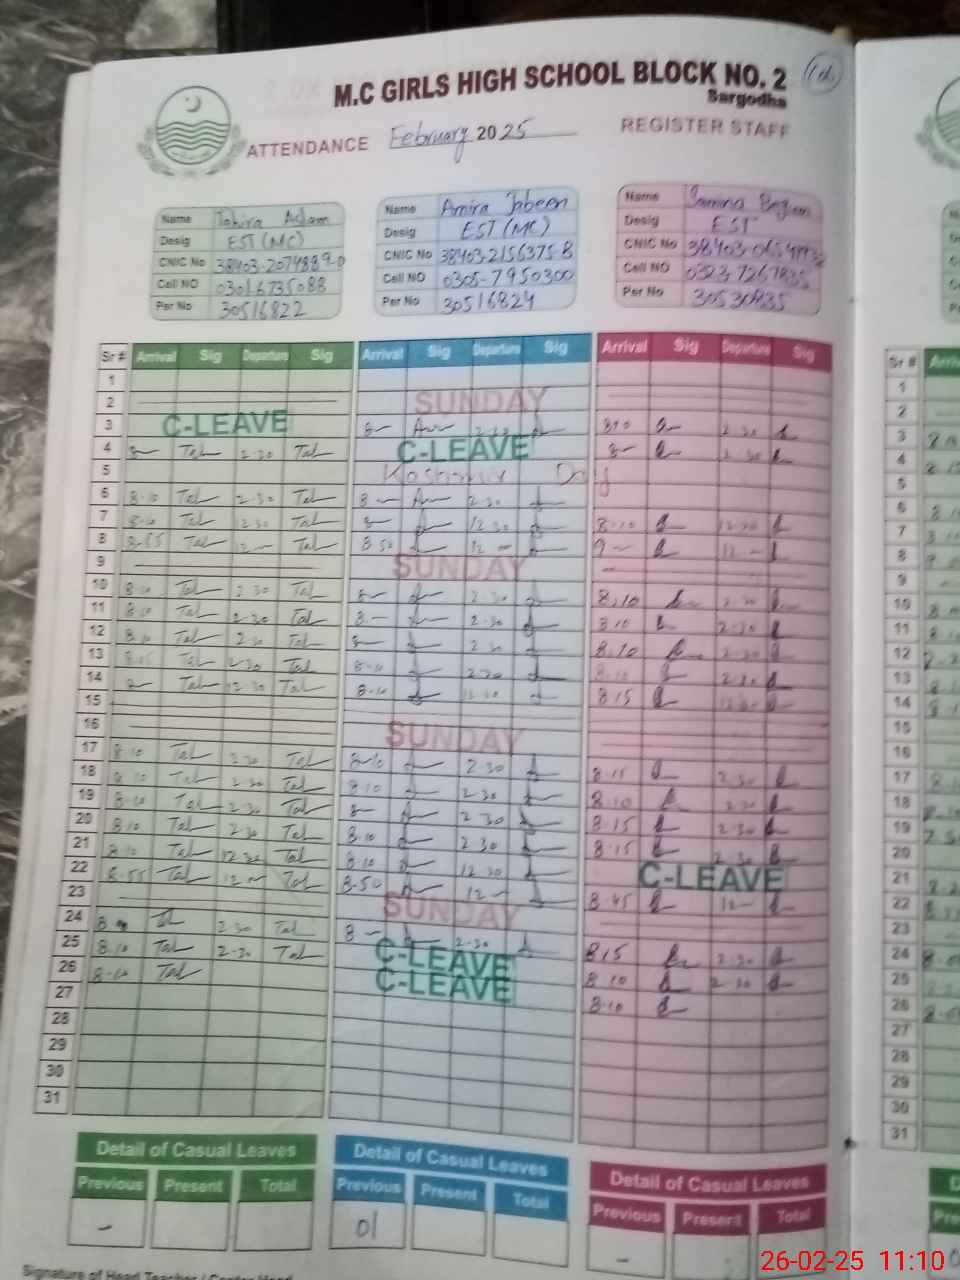 M.C GIRLS HIGH SCHOOL BLOCK NO. 2
Sargodha
ATTENDANCE February 2025 REGISTER STAFF
Name Tahira Aslam
Desig EST (MC)
CNIC No
Cell NO 03016735088
Per No 30516822
Name Amira Jabeen
Desig EST (MC)
CNIC No 38403-2156375-8
Cell NO 0305-7950300
Per No 30516824
Name Samina Begum
Desig EST
CNIC No
Cell NO 0323-7267835
Per No 30530835
Sr # Arrival Sig Departure Sig Arrival Sig Departure Sig Arrival Sig Departure Sig
1
2 SUNDAY
3 C-LEAVE 8- 2-30 810 2-30
4 8- Tal 2-30 Tal C-LEAVE 8- 2-30
5 Kashmir Day
6 8-10 Tal 2-30 Tal 8- 2-30
7 8-10 Tal 12-30 Tal 8- 12-30 8-10 12-30
8 8-55 Tal 12- Tal 8-50 12- 9- 12-
9 SUNDAY
10 8-10 Tal 2-30 Tal 8- 2-30 8,10 2-30
11 8-10 Tal 2-30 Tal 8- 2-30 8-10 2-30
12 8-10 Tal 2-30 Tal 8- 2-30 8-10 2-30
13 8-15 Tal 2-30 Tal 8-10 2-30 8-10 2-30
14 8- Tal 12-30 Tal 8-10 8-15
15
16 SUNDAY
17 8-10 Tal 2-30 Tal 8-10 2-30 8-15 2-30
18 8-10 Tal 2-30 Tal 8-10 2-30 8-10 2-30
19 8-10 Tal 2-30 Tal 8- 2-30 8-15 2-30
20 8-10 Tal 2-30 Tal 8-10 2-30 8-15 2-30
21 8-10 Tal 12-30 Tal 8-10 12-30 C-LEAVE
22 8-55 Tal 12- Tal 8-50 12- 8-45 12-
23 SUNDAY
24 2-30 Tal 8- 2-30 8,15 2-30
25 8-10 Tal 2-30 Tal C-LEAVE 8-10 2-30
26 8-10 Tal C-LEAVE 8-10
27
28
29
30
31
Detail of Casual Leaves
Previous Present Total
-
Detail of Casual Leaves
Previous Present Total
01
Detail of Casual Leaves
Previous Present Total
-
Signature of Head Teacher / Center Head
Sr #
1
2
3
4
5
6
7
8
9
10
11
12
13
14
15
16
17
18
19
20
21
22
23
24
25
26
27
28
29
30
31
26-02-25 11:10